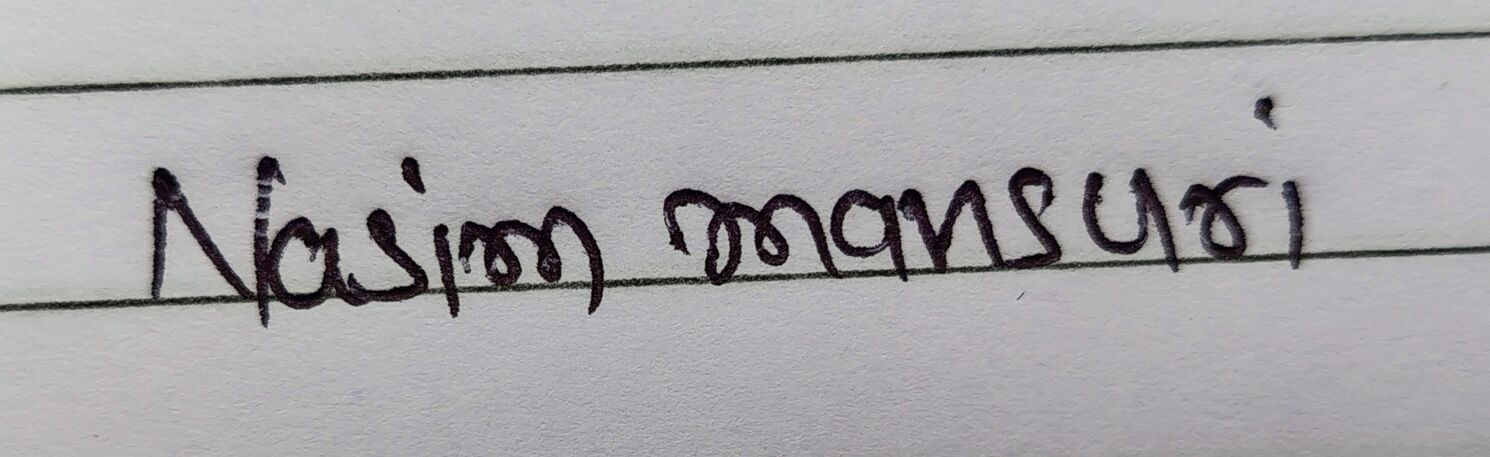 Nasim mansuri